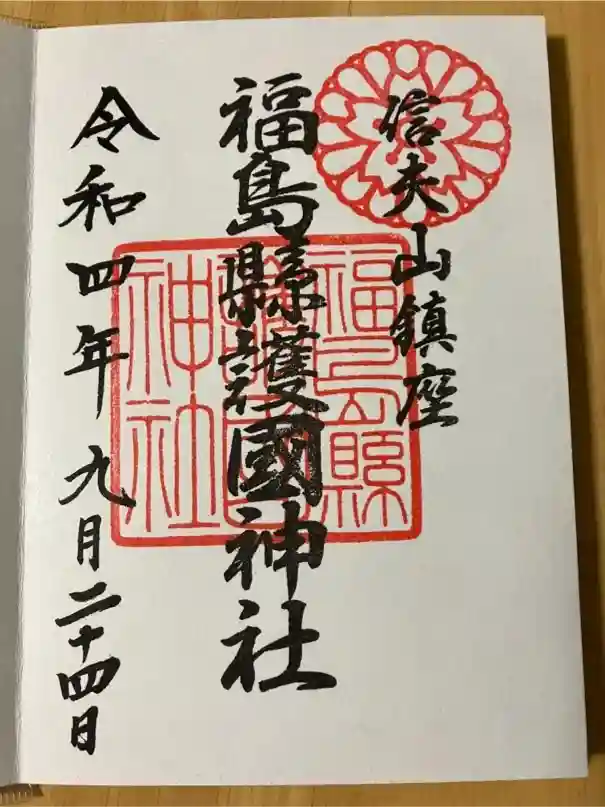 信夫山鎮座
福島縣護國神社
福島縣
護國
神社
令和四年九月二十四日